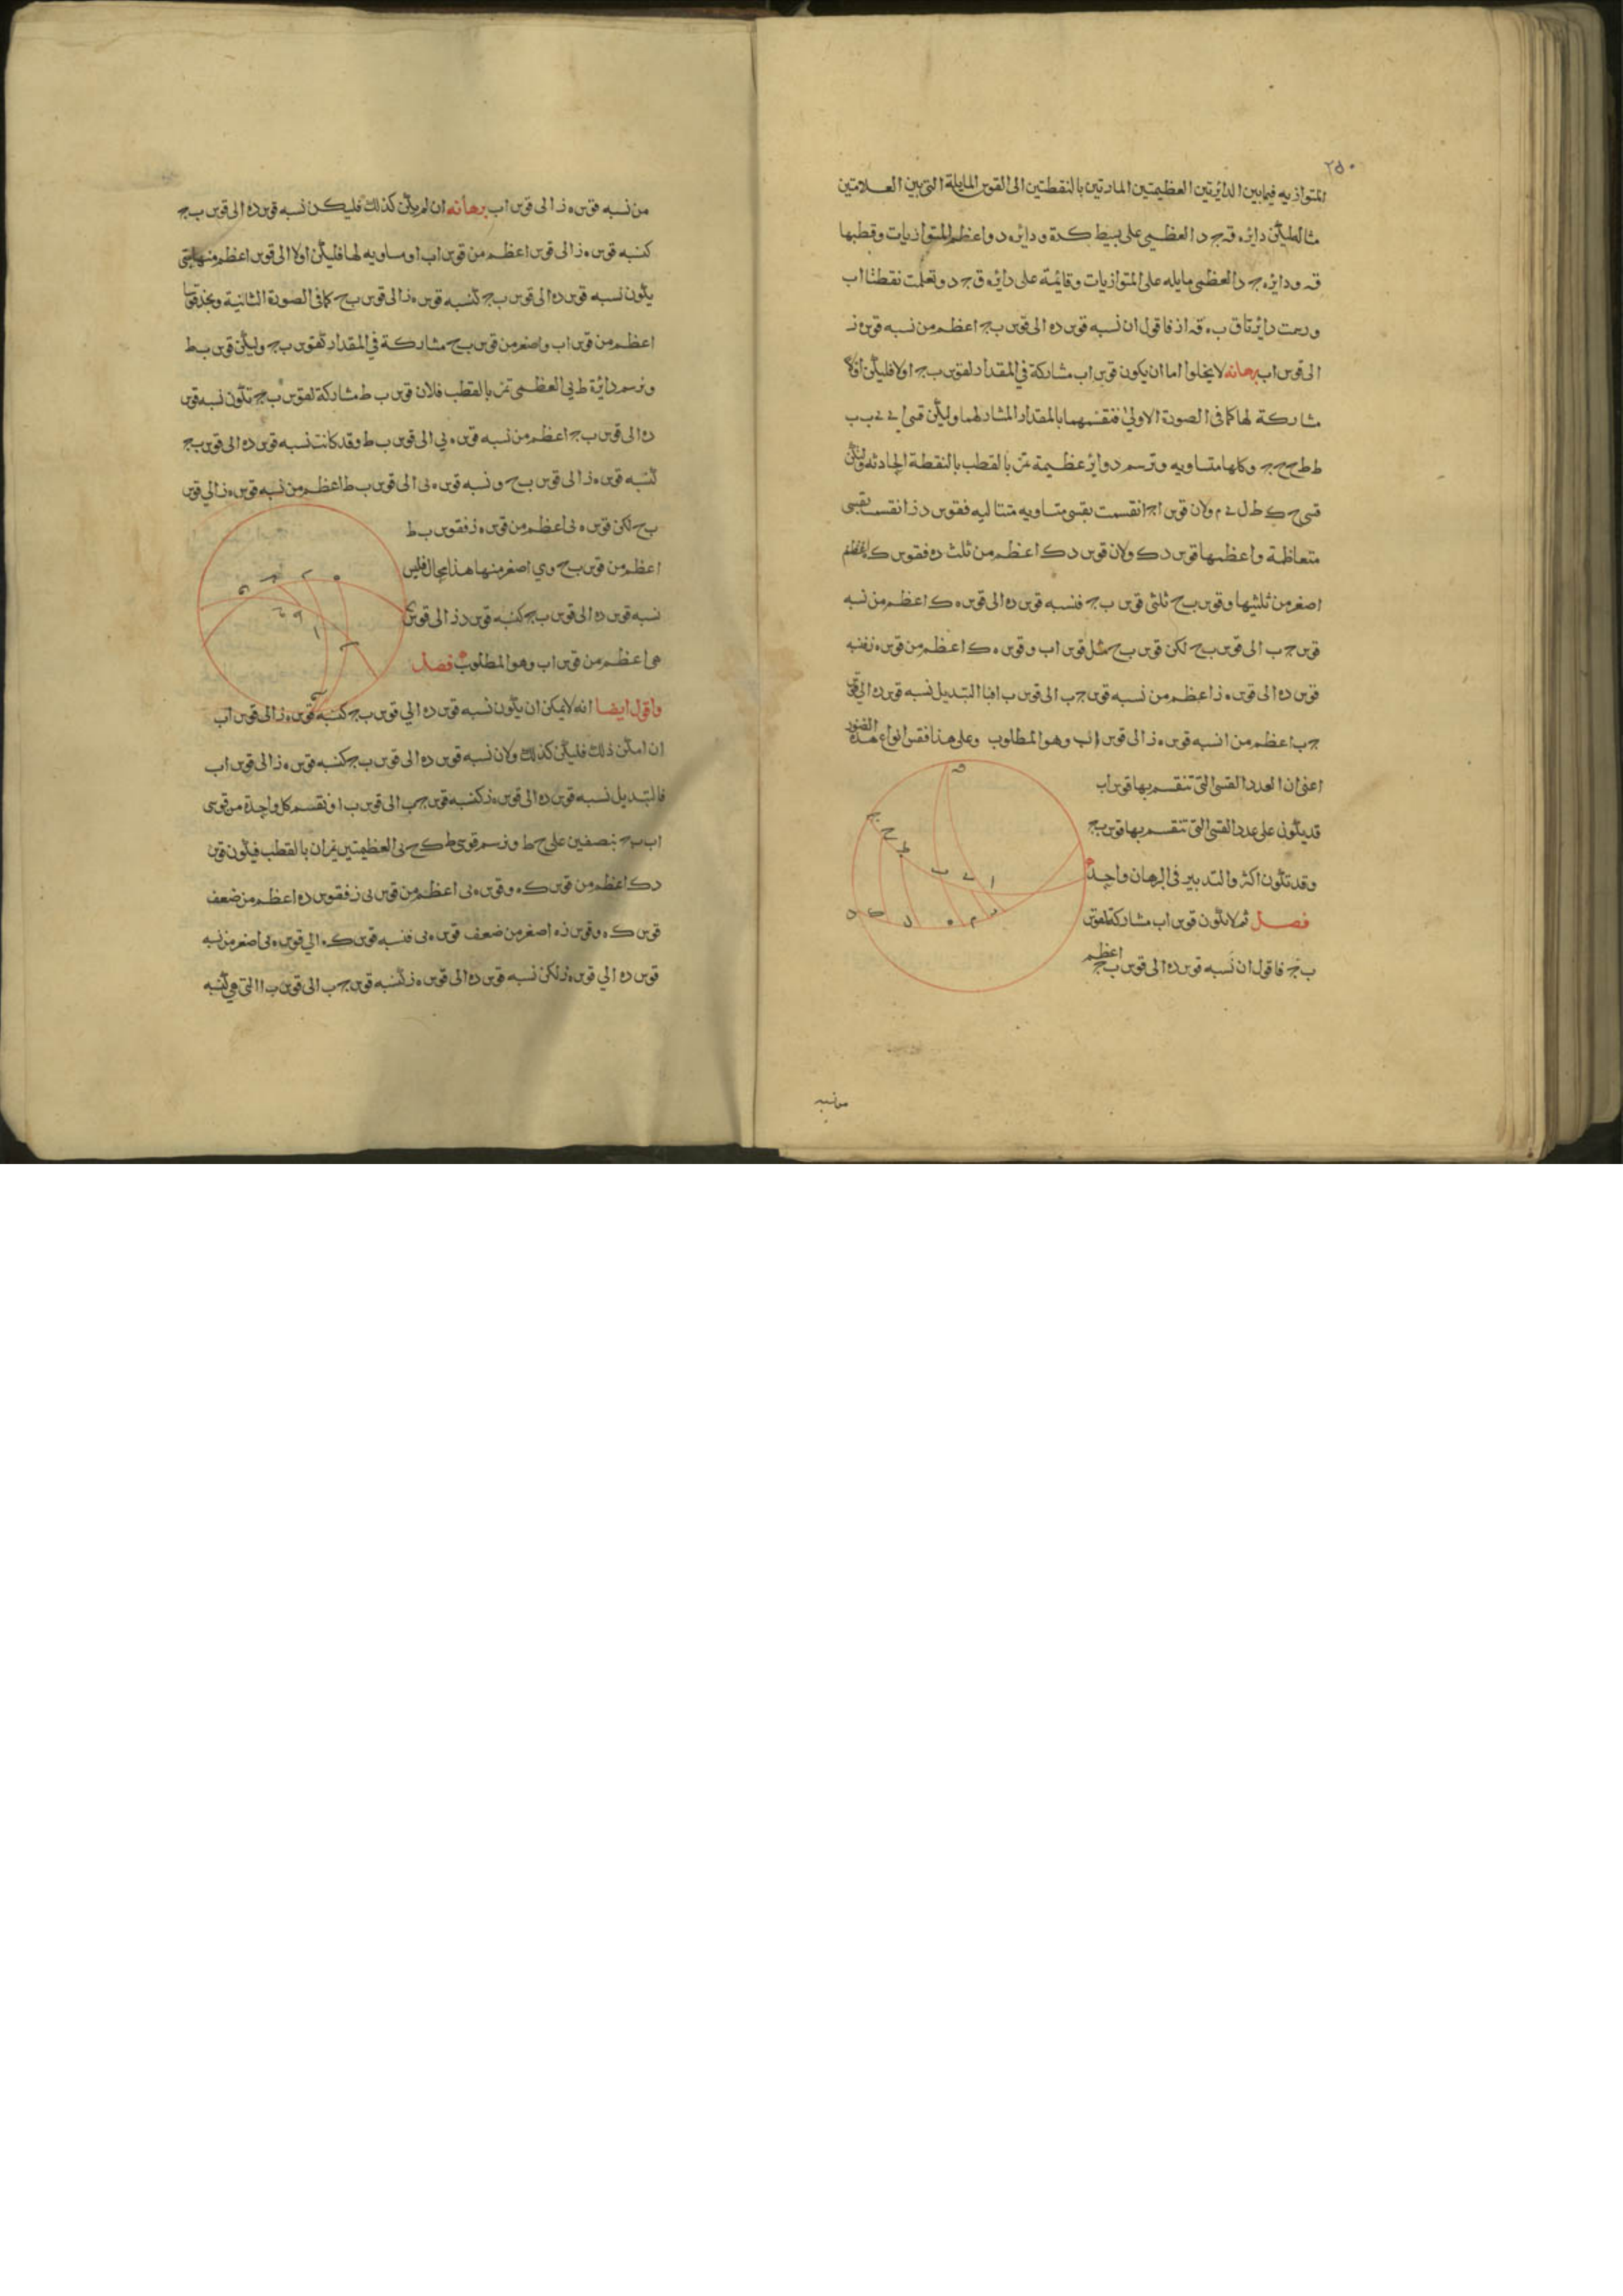 ٢٥٠
المتوازيه فيما بين الدائرتين العظيمتين المارتين بالنقطتين الى القوس المايلة التى بين العلامتين
مثاله ليكن دايره قـ جـ د العظمى على بسيط كرة و دايره د ه اعظم المتوازيات وقطبها
قـ ودايره جـ العظمى مايله على المتوازيات وقايمة على دايره ق جـ د وتعلمت نقطتا اب
ورسمت دايرتا ق ب ه قـ ا ز فاقول ان نسبه قوس ده الى قوس ب جـ اعظم من نسبه قوس ه ز
الى قوس اب برهانه لا يخلوا اما ان يكون قوس اب مشاركة في المقدار لقوس ب جـ او لا فليكن اولا
مشاركة لها كما فى الصورة الاولى فنقسمهما بالمقدار المشارك لهما وليكن قسى اى ى ب ب
ط ط ح ح جـ وكلها متساويه ونرسم دواير عظيمة تمر بالقطب بالنقطة الحادثه وليكن
قسى ح ك ط ل ى م ولان قوس ا جـ انقسمت بقسى متساويه متتاليه فقوس د ز انقسمت بقسى
متعاظمة واعظمها قوس د ك ولان قوس د ك اعظم من ثلث ده فقوس ك ه
اصغر من ثلثيها وقوس ب ح ثلثى قوس ب جـ فنسبه قوس ده الى قوس ه ك اعظم من نسبه
قوس جـ ب الى قوس ب ح لكن قوس ب ح مثل قوس اب وقوس ه ك اعظم من قوس ه ز فنسبه
قوس ده الى قوس ه ز اعظم من نسبه قوس جـ ب الى قوس ب ا فبالتبديل نسبه قوس ده الى قوس
جـ ب اعظم من نسبه قوس ه ز الى قوس اب وهو المطلوب وعلى هذا فقس انواع هذه الصور
اعنى ان العدد القسى التى تنقسم بها قوس اب
قد يكون على عدد القسى التى تنقسم بها قوس ب جـ
وقد تكون اكثر والتدبير فى البرهان واحد
فصل ثم لا تكون قوس اب مشاركة لقوس
ب جـ فاقول ان نسبه قوس ده الى قوس ب جـ اعظم
من نسبه
من نسبه قوس ه ز الى قوس اب برهانه ان لم يكن كذلك فليكن نسبه قوس ده الى قوس ب جـ
كنسبه قوس ه ز الى قوس اعظم من قوس اب او مساويه لها فليكن اولا الى قوس اعظم منها حتى
يكون نسبه قوس ده الى قوس ب جـ كنسبه قوس ه ز الى قوس ب ح كما فى الصورة الثانية ونجد قوسا
اعظم من قوس اب واصغر من قوس ب ح مشاركة في المقدار لقوس ب جـ وليكن قوس ب ط
ونرسم دايرة ط ى العظمى تمر بالقطب فلان قوس ب ط مشاركة لقوس ب جـ تكون نسبه قوس
ده الى قوس ب جـ اعظم من نسبه قوس ه ى الى قوس ب ط وقد كانت نسبه قوس ده الى قوس ب جـ
كنسبه قوس ه ز الى قوس ب ح و نسبه قوس ه ى الى قوس ب ط اعظم من نسبه قوس ه ز الى قوس
ب ح لكن قوس ه ى اعظم من قوس ه ز فقوس ب ط
اعظم من قوس ب ح وهي اصغر منها هذا محال فليس
نسبه قوس ده الى قوس ب جـ كنسبه قوس ه ز الى قوس
هى اعظم من قوس اب وهو المطلوب فصل
واقول ايضا انه لا يمكن ان يكون نسبه قوس ده الي قوس ب جـ كنسبه قوس ه ز الى قوس اب
ان امكن ذلك فليكن كذلك ولان نسبه قوس ده الى قوس ب جـ كنسبه قوس ه ز الى قوس اب
فبالتبديل نسبه قوس ده الى قوس ه ز كنسبه قوس جـ ب الى قوس ب ا ونقسم كل واحدة من قوسى
اب ب جـ بنصفين على ح ط ونرسم قوسى ط ك ح ى العظيمتين يمران بالقطب فيكون قوس
د ك اعظم من قوس ك ه وقوس ه ى اعظم من قوس ى ز فقوس ده اعظم من ضعف
قوس ك ه وقوس ز ه اصغر من ضعف قوس ه ى فنسبه قوس ك ه الي قوس ه ى اصغر من نسبه
قوس ده الي قوس ه ز لكن نسبه قوس ده الى قوس ه ز كنسبه قوس جـ ب الى قوس ب ا التى هي كنسبه